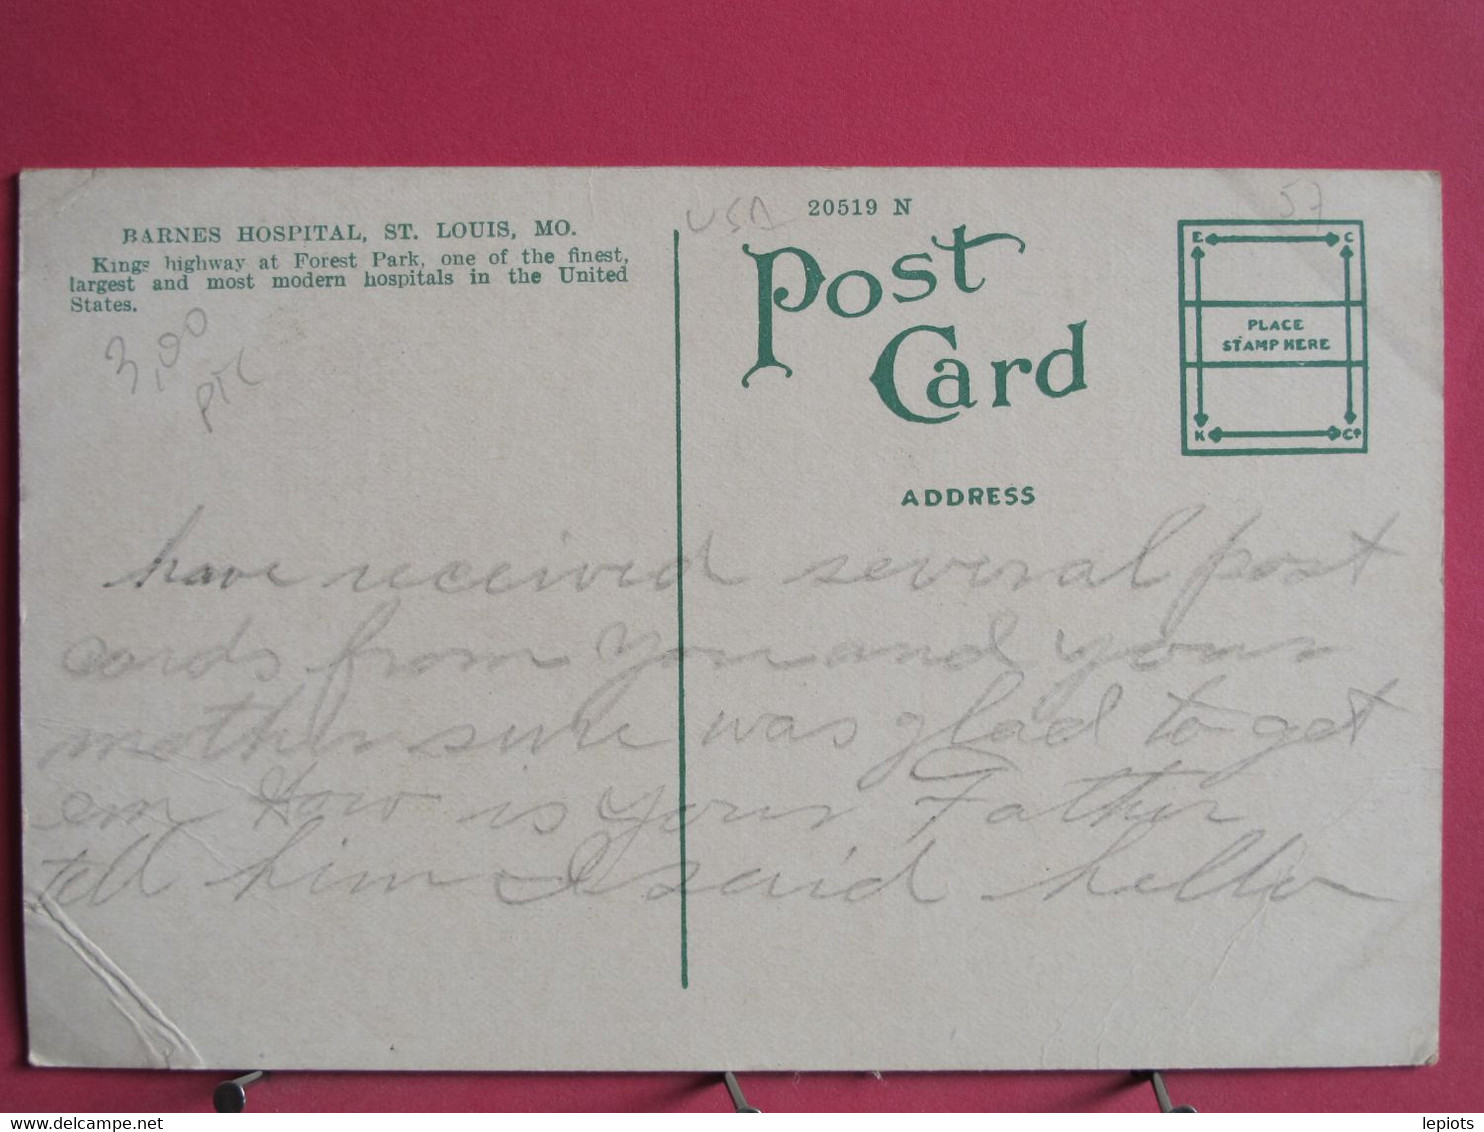 BARNES HOSPITAL, ST. LOUIS, MO.
Kings highway at Forest Park, one of the finest,
largest and most modern hospitals in the United
States.
3,00
PTC
USA
20519 N
Post
Card
57
E C
PLACE
STAMP HERE
K Co
ADDRESS
have received several post
cards from you and your
mother sure was glad to get
em How is your Father
tell him I said hello
www.delcampe.net
lepiots